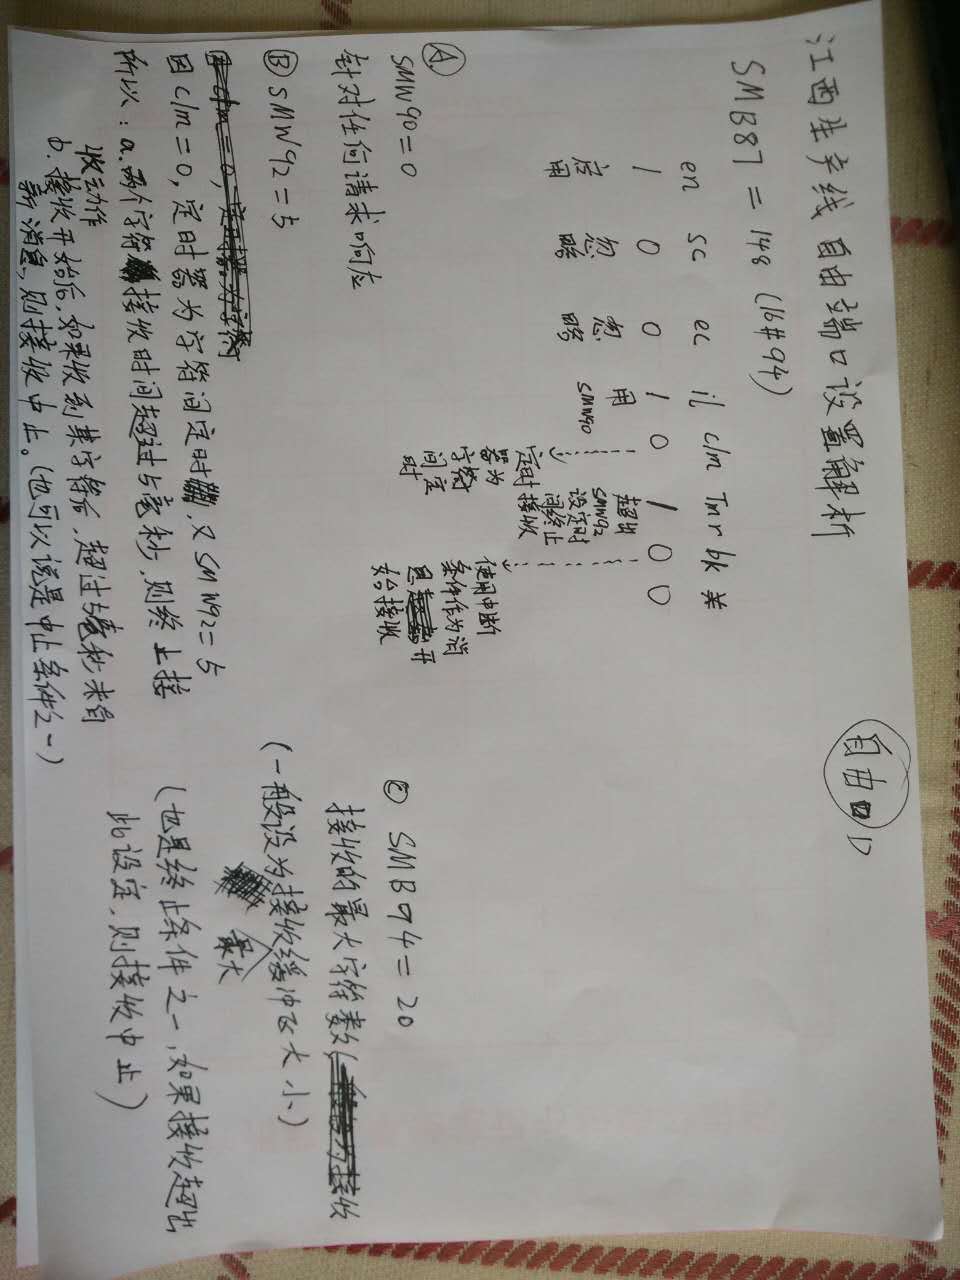 江西生产线自由端口设置解析
自由口1)
SMB87 = 148 (16#94)
en sc ec il c/m Tmr bk 米
1 0 0 1 0 1 0 0
启用
忽略
忽略
用
SMW90
定时
器为
字符
间定
时
超出
SMW92
设定时
间终止
接收
使用中断
条件作为消
息开
始接收
Ⓐ
SMW90=0
针对任何请求响应
Ⓑ SMW92=5
因c/m=0,定时器为字符间定时,又SMW92=5
所以:a.两个字符接收时间超过5毫秒,则终止接
收动作
b.接收开始后,如果收到某字符后,超过5毫秒未有
新消息,则接收中止。(也可以说是中止条件之一)
Ⓒ SMB94=20
接收的最大字符数(
(一般设为最大接收缓冲区大小)
(也是终止条件之一,如果接收超出
此设定,则接收中止)